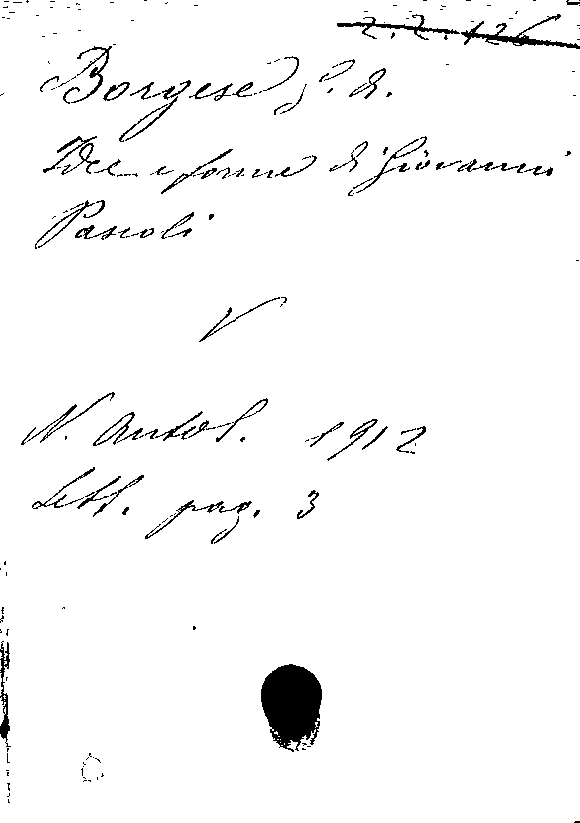 2.2.126
Borgese G. A.
Idee e forme di Giovanni
Pascoli
V
N. Antol. 1912
Sett. pag. 3